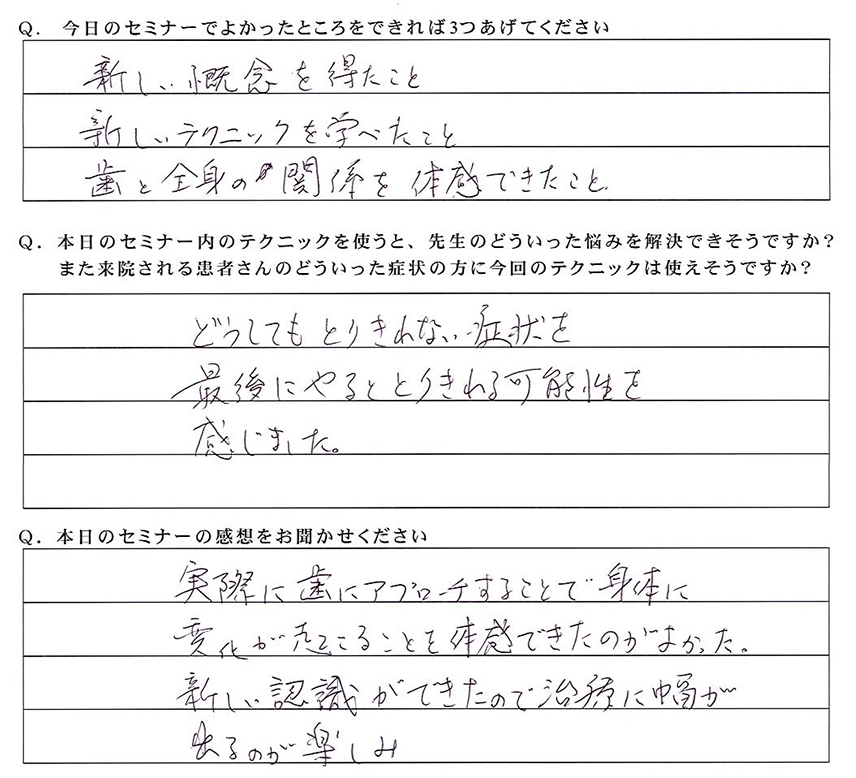 Q. 今日のセミナーでよかったところをできれば3つあげてください
新しい概念を得たこと
新しいテクニックを学べたこと
歯と全身の関係を体感できたこと
Q. 本日のセミナー内のテクニックを使うと、先生のどういった悩みを解決できそうですか？
また来院される患者さんのどういった症状の方に今回のテクニックは使えそうですか？
どうしてもとりきれない症状を
最後にやるととりきれる可能性を
感じました。
Q. 本日のセミナーの感想をお聞かせください
実際に歯にアプローチすることで身体に
変化が起こることを体感できたのがよかった。
新しい認識ができたので治療に幅が
出るのが楽しみ